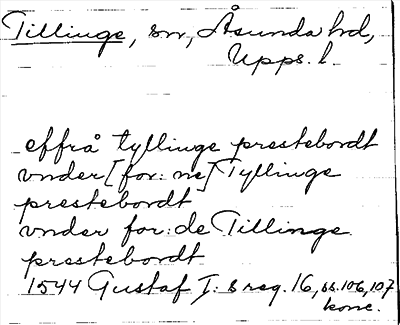 Tillinge, sn, Åsunda hd,
Upps. l.
effrå tyllinge prestebordt
vnder [for: ne] Tyllinge
prestebordt
vnder for: de Tillinge
prestebordt
1544 Gustaf I: s reg. 16, ss. 106, 107
konc.